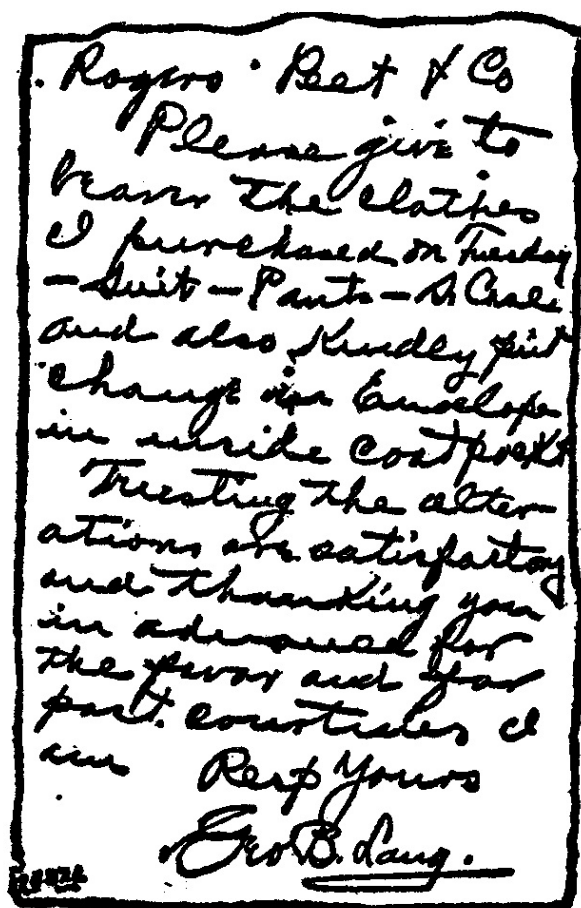 Rogers Peet & Co
Please give to
bearer the clothes
I purchased on Tuesday
- Suit - Pants - S. Case.
and also kindly put
change in Envelope
in inside coat pocket
Trusting the alter-
ations are satisfactory
and thanking you
in advance for
the favor and for
past courtesies I
am Resp Yours
Geo B. Lang.